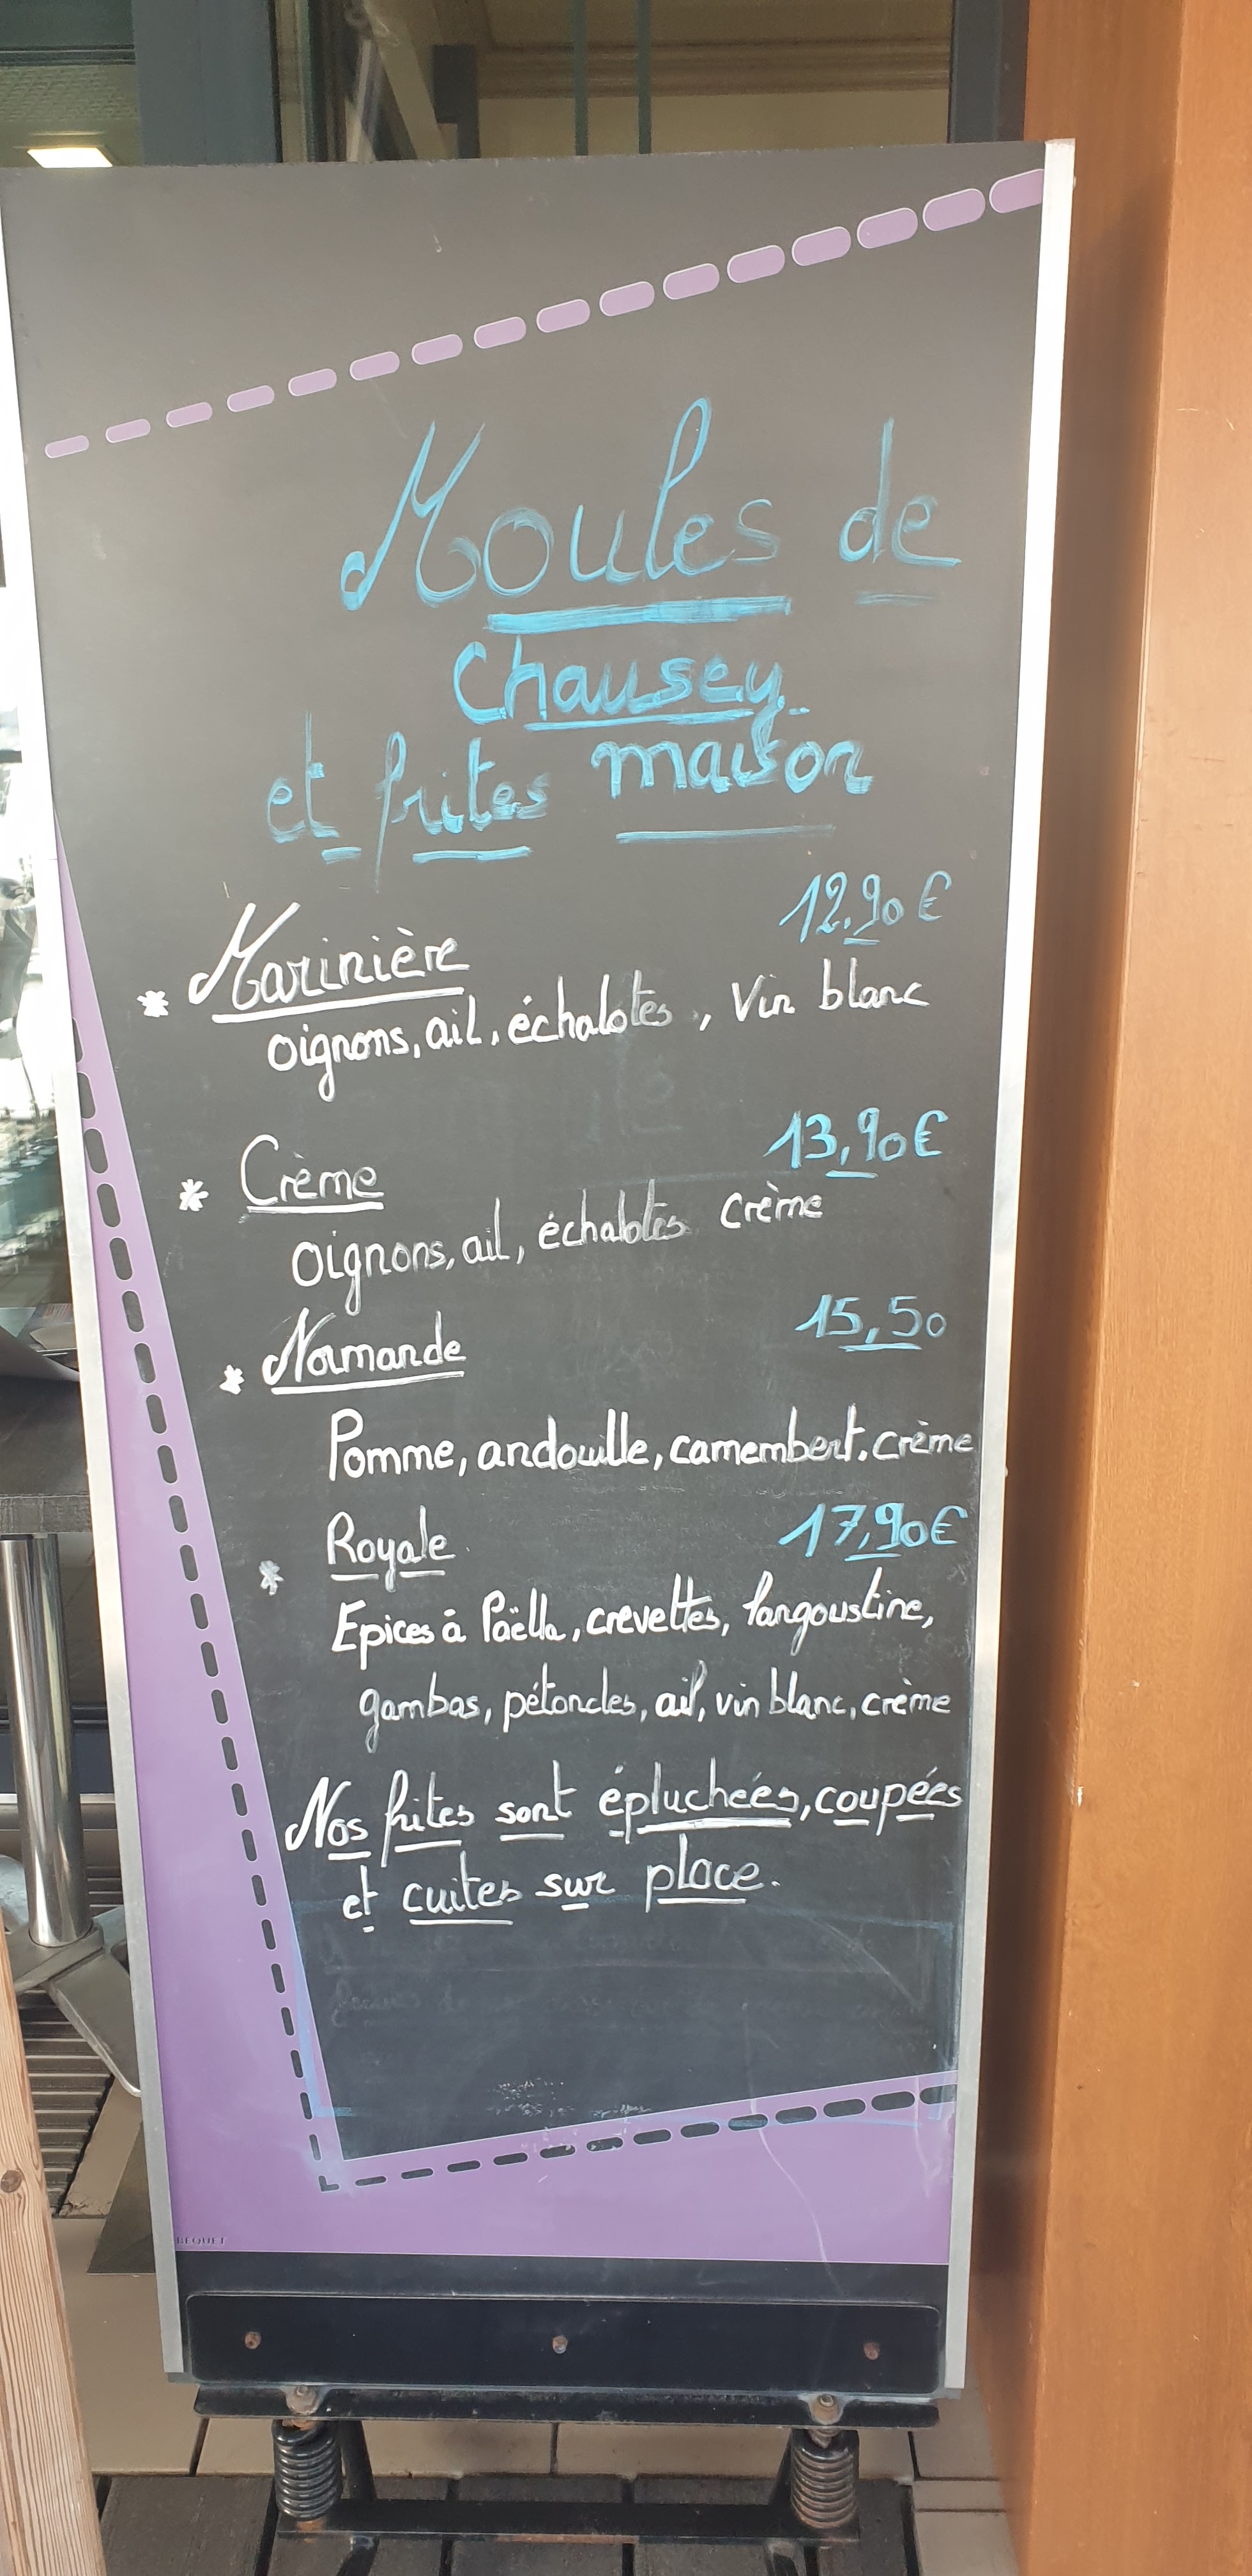 Moules de
Chausey
et frites maison
12.90 €
* Marinière
oignons, ail, échalotes, Vin blanc
13,90€
* Crème
oignons, ail, échalotes crème
15,50
* Normande
Pomme, andouille, camembert. crème
* Royale 17,90€
Epices à Paëlla, crevettes, langoustine,
gambas, pétoncles, ail, vin blanc, crème
Nos frites sont épluchées, coupées
et cuites sur place.
BEQUET